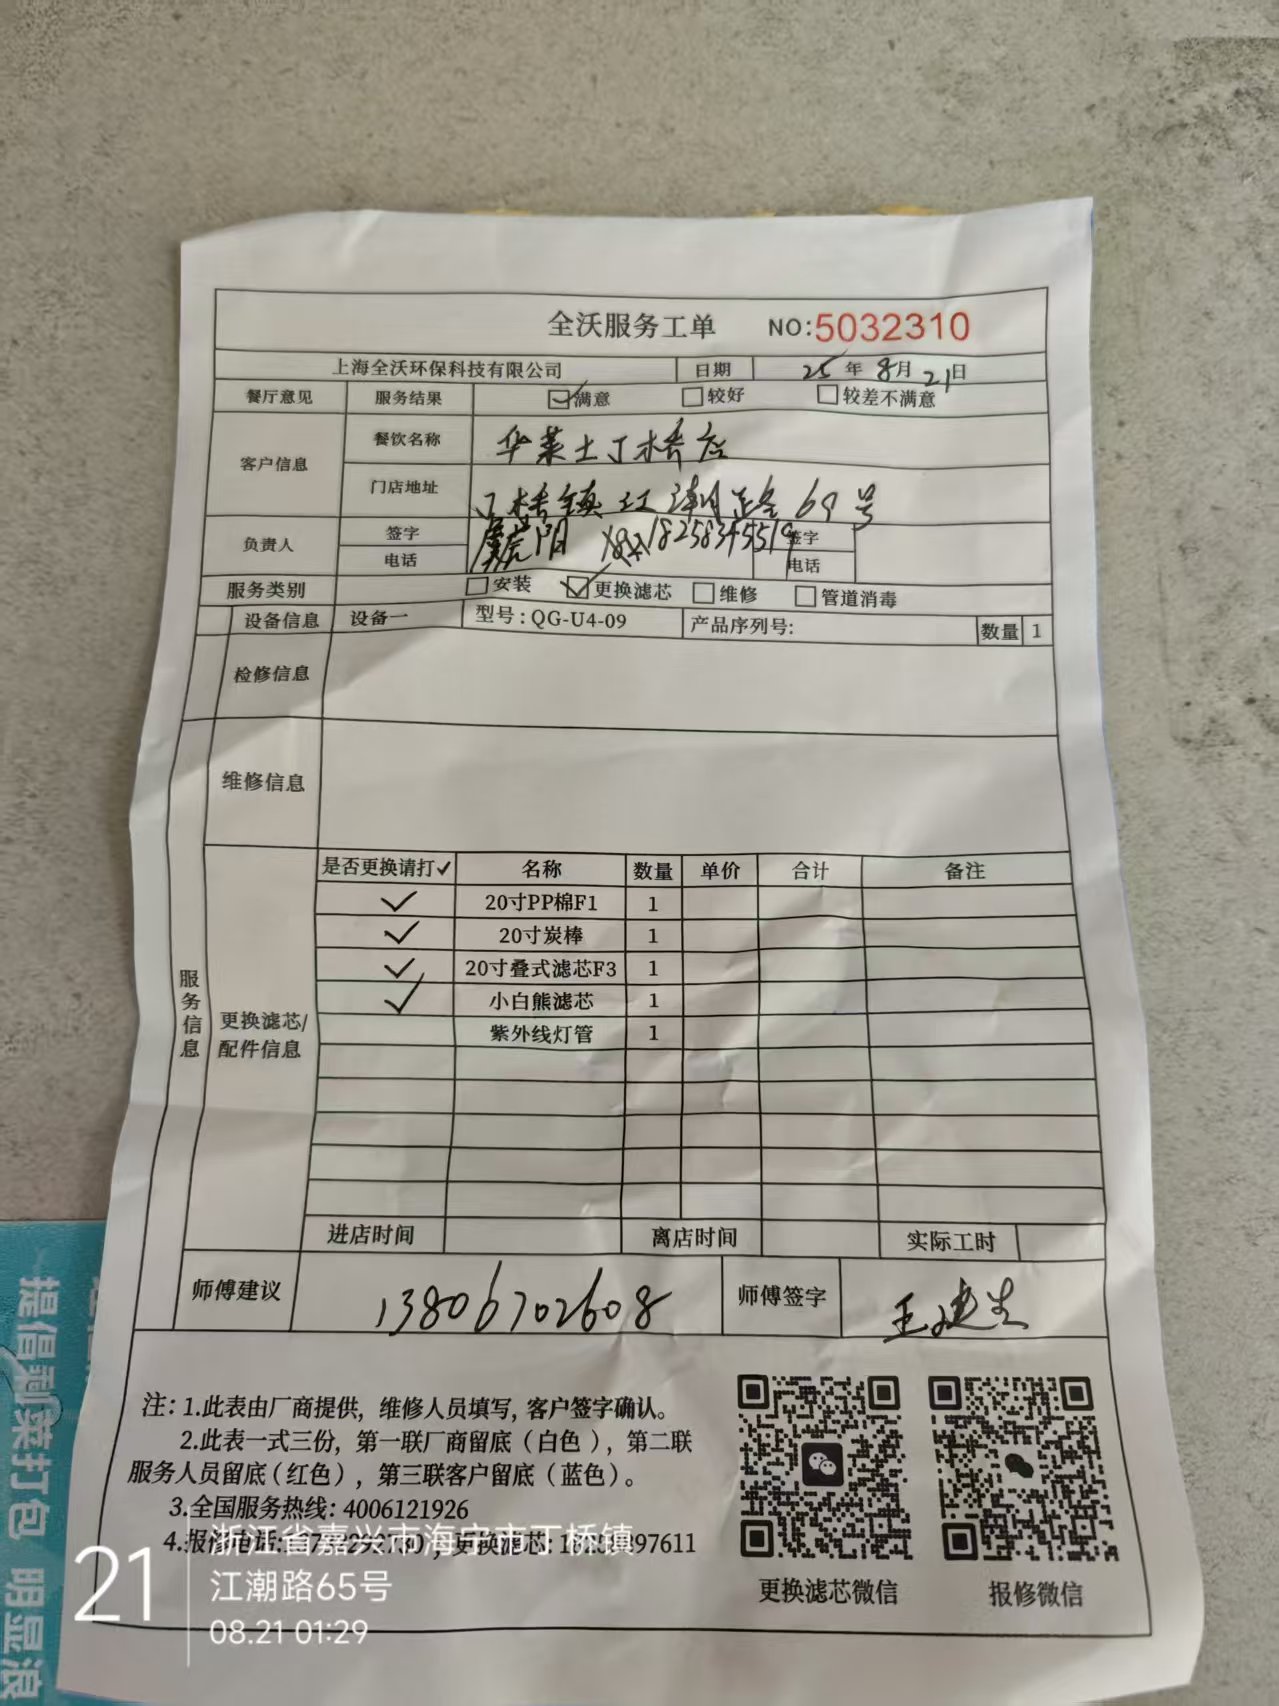 全沃服务工单 NO:5032310
上海全沃环保科技有限公司 日期 25年8月21日
餐厅意见 服务结果 ☑满意 □较好 □较差不满意
客户信息 餐饮名称 华莱士丁桥店
门店地址 丁桥镇江潮路69号
负责人 签字 18258345519 签字
电话 电话
服务类别 □安装 ☑更换滤芯 □维修 □管道消毒
设备信息 设备一 型号:QG-U4-09 产品序列号: 数量 1
检修信息
维修信息
服务信息
更换滤芯/配件信息
是否更换请打✓ 名称 数量 单价 合计 备注
✓ 20寸PP棉F1 1
✓ 20寸炭棒 1
✓ 20寸叠式滤芯F3 1
✓ 小白熊滤芯 1
紫外线灯管 1
进店时间 离店时间 实际工时
师傅建议 13806702608 师傅签字 王建生
注: 1.此表由厂商提供, 维修人员填写, 客户签字确认。
2.此表一式三份, 第一联厂商留底(白色), 第二联
服务人员留底(红色), 第三联客户留底(蓝色)。
3.全国服务热线: 4006121926
4.报修电话: 更换滤芯: 97611
更换滤芯微信 报修微信
21
浙江省嘉兴市海宁市丁桥镇
江潮路65号
08.21 01:29
提倡剩菜打包 明显浪